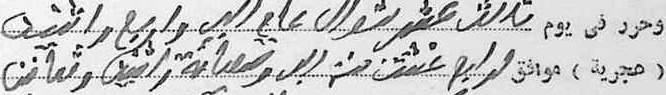 وحرر في يوم ثالث عشر شوال عام الف واربع واثنين
( هجرية ) موافق لرابع غشت سنة الف وتسعمائة واثنين وثمانين